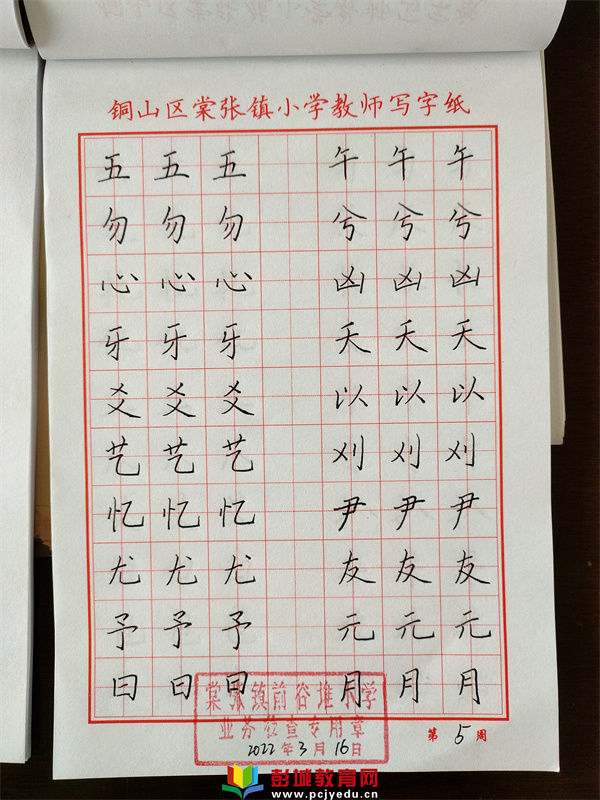 铜山区棠张镇小学教师写字纸
五 五 五 午 午 午
勿 勿 勿 兮 兮 兮
心 心 心 凶 凶 凶
牙 牙 牙 夭 夭 夭
爻 爻 爻 以 以 以
艺 艺 艺 刈 刈 刈
忆 忆 忆 尹 尹 尹
尤 尤 尤 友 友 友
予 予 予 元 元 元
曰 曰 曰 月 月 月
棠张镇前谷堆小学
业务检查专用章
2022年3月16日
第5周
彭城教育网
www.pcjyedu.cn